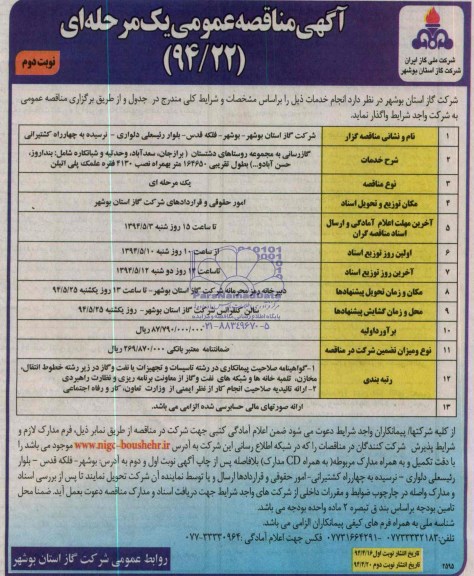 آگهی مناقصه عمومی یک مرحله‌ای
(۹۴/۲۲)
نوبت دوم
شرکت ملی گاز ایران
شرکت گاز استان بوشهر
شرکت گاز استان بوشهر در نظر دارد انجام خدمات ذیل را براساس مشخصات و شرایط کلی مندرج در جدول و از طریق برگزاری مناقصه عمومی
به شرکت واجد شرایط واگذار نماید.
۱ نام و نشانی مناقصه گزار شرکت گاز استان بوشهر- بوشهر- فلکه قدس- بلوار رئیسعلی دلواری - نرسیده به چهارراه کشتیرانی
۲ شرح خدمات گازرسانی به مجموعه روستاهای دشتستان ( برازجان، سعدآباد، وحدتیه و شبانکاره شامل: بنداروز،
حسن آبادو...) بطول تقریبی ۱۶۴۶۵۰ متر بهمراه نصب ۴۱۳۰ فقره علمک پلی اتیلن
۳ نوع مناقصه یک مرحله ای
۴ مکان توزیع و تحویل اسناد امور حقوقی و قراردادهای شرکت گاز استان بوشهر
۵ آخرین مهلت اعلام آمادگی و ارسال
اسناد مناقصه گران تا ساعت ۱۵ روز شنبه ۱۳۹۴/۵/۳
۶ اولین روز توزیع اسناد از ساعت ۱۰ روز شنبه ۱۳۹۴/۵/۱۰
۷ آخرین روز توزیع اسناد تا ساعت ۱۴ روز دو شنبه ۱۳۹۴/۵/۱۲
۸ مکان و زمان تحویل پیشنهادها دبیرخانه رمز محرمانه شرکت گاز استان بوشهر- تا ساعت ۱۳ روز یکشنبه ۹۴/۵/۲۵
۹ محل و زمان گشایش پیشنهادها سالن کنفرانس شرکت گاز استان بوشهر- روز یکشنبه ۹۴/۵/۲۵
۱۰ برآورد اولیه ۸۷/۷۹۰/۰۰۰/۰۰۰ ریال
پایگاه اطلاع رسانی مناقصه و مزایده
۰۲۱-۸۸۳۴۹۶۷۰-۵
۱۱ نوع ومیزان تضمین شرکت در مناقصه ضمانتنامه معتبر بانکی ۴۶۹/۸۷۰/۰۰۰ ریال
۱۲ رتبه بندی ۱-گواهینامه صلاحیت پیمانکاری در رشته تاسیسات و تجهیزات یا نفت و گاز در زیر رشته خطوط انتقال،
مخازن، تلمبه خانه ها و شبکه های نفت وگاز از معاونت برنامه ریزی و نظارت راهبردی
۲- ارائه تائیدیه صلاحیت انجام کار از نظر ایمنی از وزارت تعاون، کار و رفاه اجتماعی
۱۳ ارائه صورتهای مالی حسابرسی شده الزامی می باشد.
از کلیه شرکتها/ پیمانکاران واجد شرایط دعوت می شود ضمن اعلام آمادگی کتبی جهت شرکت در مناقصه از طریق نمابر ذیل، فرم مدارک لازم و
شرایط پذیرش شرکت کنندگان در مناقصات را که در شبکه اطلاع رسانی این شرکت به آدرس www.nigc-boushehr.ir موجود می باشد را
با دقت تکمیل و به همراه مدارک مربوطه( به همراه CD مدارک) بلافاصله پس از چاپ آگهی نوبت اول و دوم به آدرس: بوشهر- فلکه قدس - بلوار
رئیسعلی دلواری - نرسیده به چهارراه کشتیرانی- امور حقوقی و قراردادها ارسال و یا توسط نماینده آن شرکت تحویل نمایند تا پس از بررسی اسناد
و مدارک واصله در چارچوب ضوابط و مقررات داخلی از شرکت های واجد شرایط جهت دریافت اسناد و مدارک مناقصه دعوت بعمل آید. ضمنا محل
تامین بودجه براساس بند ق تبصره ۲ ماده واحده بودجه می باشد.
شناسه ملی به همراه فرم های کیفی پیمانکاران الزامی می باشد.
تلفن: ۰۷۷۳۳۳۳۲۱۸۳- ۰۷۷۳۱۶۶۴۲۹۱ فکس جهت اعلام آمادگی: ۳۳۳۳۰۹۶۴-۰۷۷
تاریخ انتشار نوبت اول ۹۴/۴/۱۶
تاریخ انتشار نوبت دوم ۹۴/۴/۲۰
روابط عمومی شرکت گاز استان بوشهر
۲۵۹۵